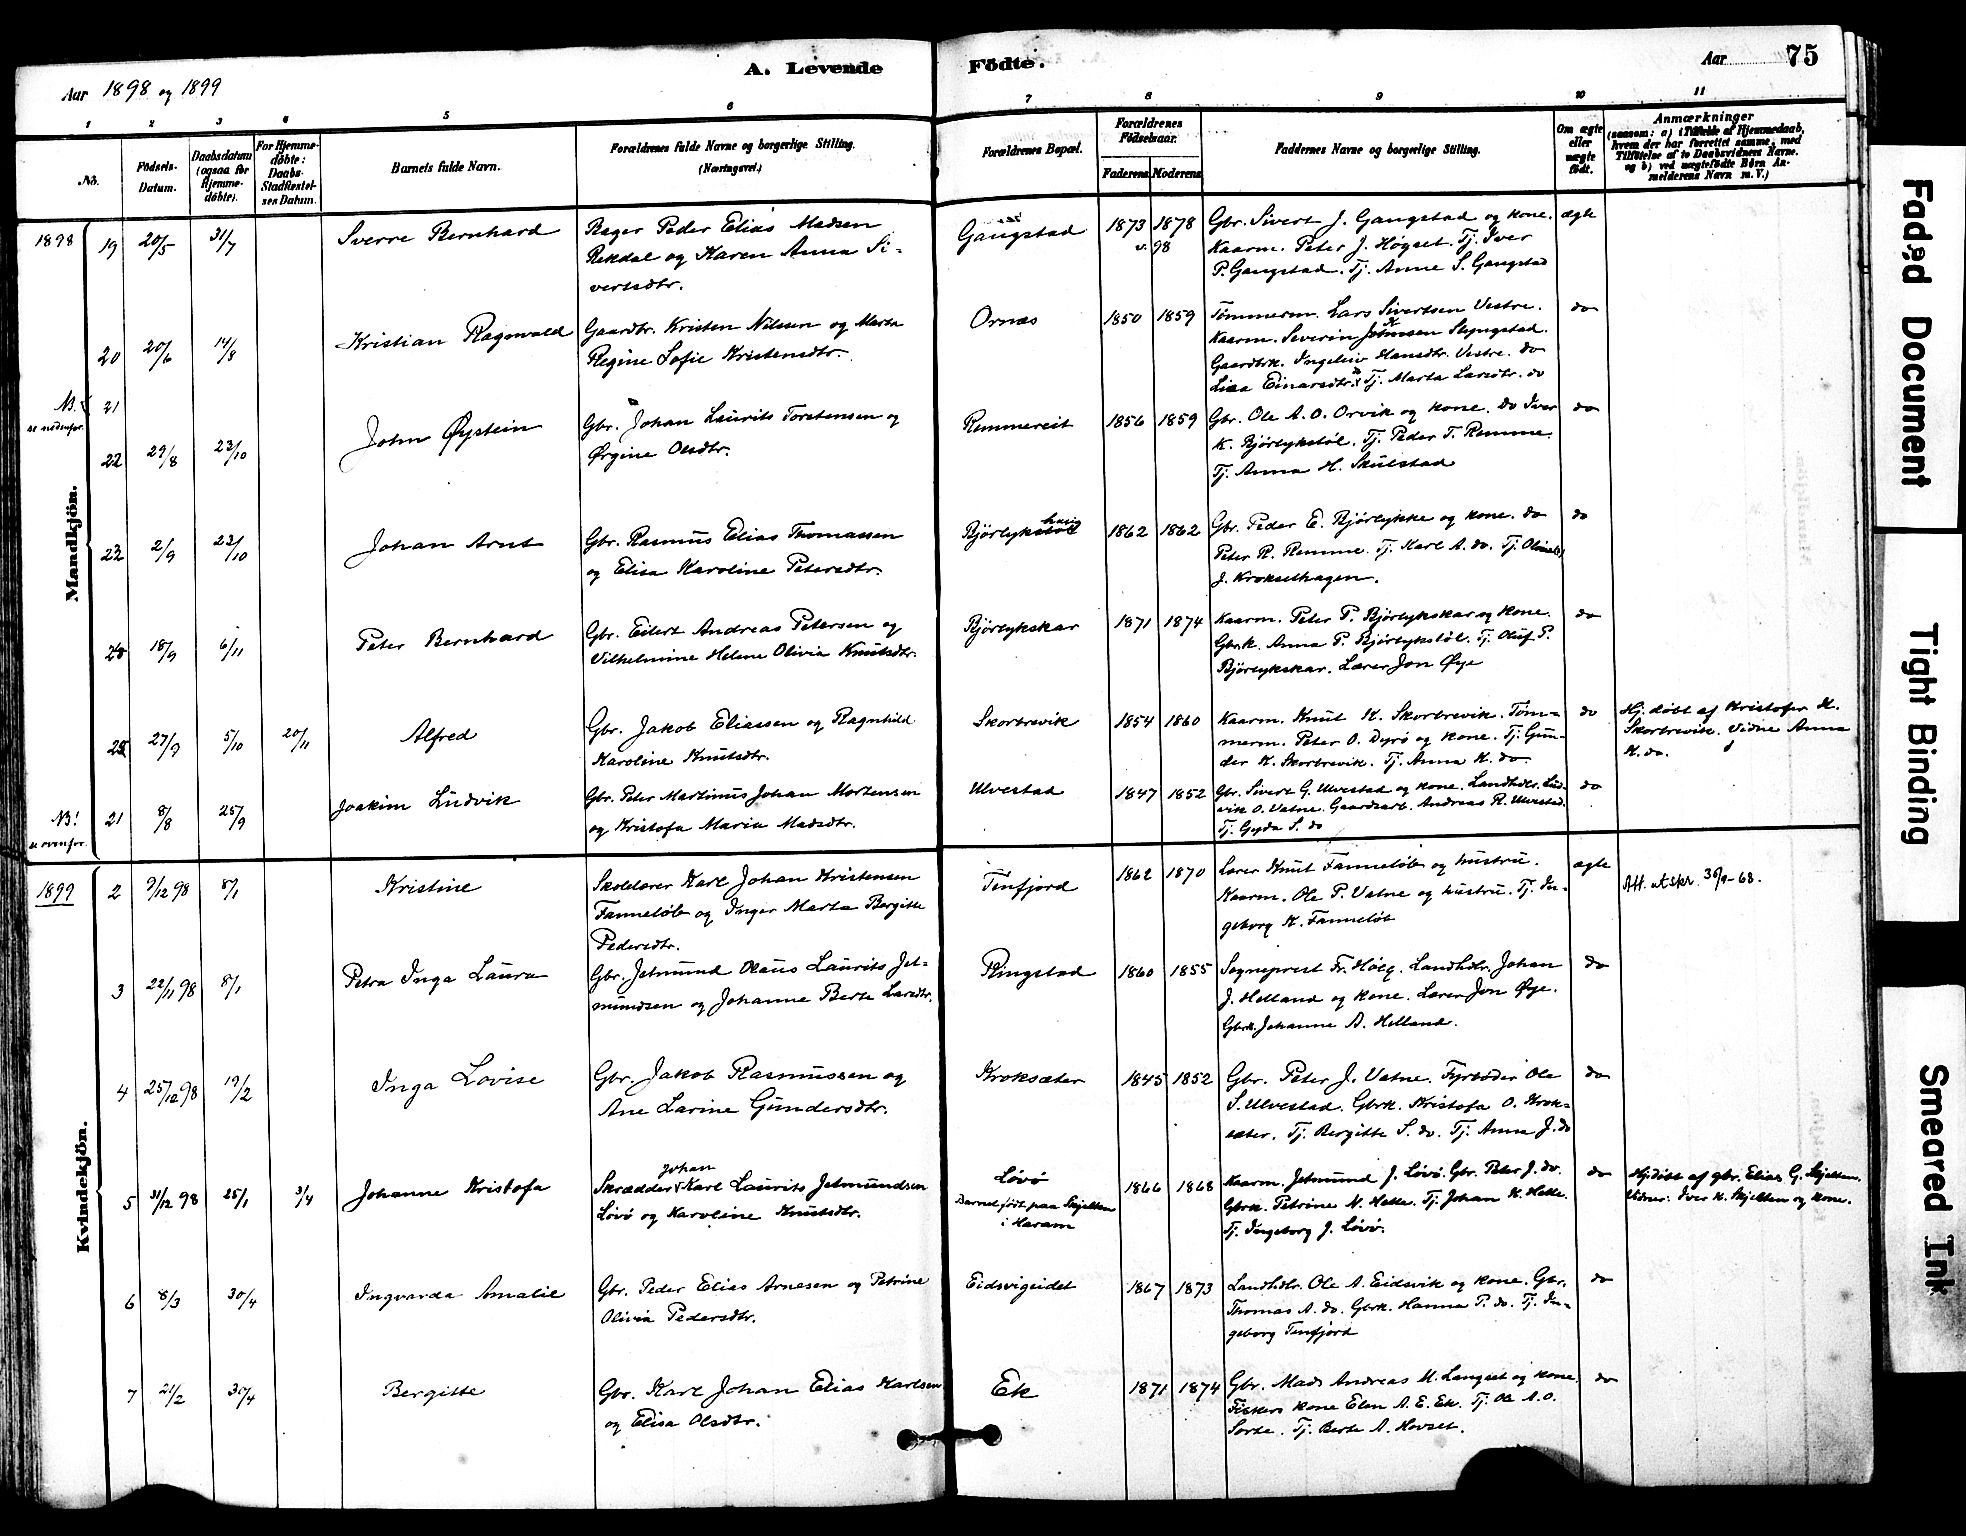 Aar 1898 og 1899
A. Levende
Födte.
Aar 75
1 2 3 4 5 6 7 8 9 10 11
No.
Födsels-Datum.
Daabsdatum (ogsaa for Hjemmedöbte).
For Hjemmedöbte: Daabs-Stadfæstelses Datum.
Barnets fulde Navn.
Forældrenes fulde Navne og borgerlige Stilling.
(Næringsvei.)
Forældrenes Bopæl.
Forældrenes Födselsaar.
Faderens Moderens
Faddernes Navne og borgerlige Stilling.
Om ægte eller uægte födt.
Anmærkninger
(saasom: a) i Tilfælde af Hjemmedaab, hvem der har forrettet samme, med Tilföielse af to Daabsvidners Navne, og b) ved uægtefödte Börn Anmelderens Navn m. V.)
Mandkjön.
1898 19 20/5 31/7 Sverre Bernhard
Bager Peder Elias Madsen
Rekdal og Karen Anna Si-
vertsdtr.
Gangstad 1873 1878
v. 98
Gbr. Sivert J. Gangstad og kone.
Kaarm. Peter J. Høgset. Tj. Iver
P. Gangstad. Tj. Anne S. Gangstad
ægte
20 20/6 14/8 Kristian Ragnvald
Gaardbr. Kristen Nilssen og Marta
Regine Sofie Kristensdtr.
Ornæs 1850 1859
Tømmerm. Lars Sivertsen Vestre.
Kaarm. Severin Slyngstad.
Gaardbrk. Hansdtr. Vestre. do
Einarsdtr. Tj. Marta Larsdtr. do
do
NB. 21
se nedenfor.
22 29/8 23/10 John Øystein
Gbr. Johan Laurits Torstensen og
Ørgine Olsdtr.
Remmereit 1856 1859
Gbr. Ole A. O. Orvik og kone. do Iver
K. Bjørlykstøl. Tj. Peder T. Remme.
Tj. Anna H. Skulstad
do
23 2/9 23/10 Johan Arnt
Gbr. Rasmus Elias Thomassen
og Elisa Karoline Petersdtr.
Bjørlykhaug 1862 1862
Gbr. Peder E. Bjørlykke og kone. do
Peter R. Remme. Tj. Karl A. do. Tj.
J. Kroksethagen.
do
18/9 6/11 Peter Bernhard
Gbr. Eilert Andreas Petersen og
Vilhelmine Helene Olivia Knutsdtr.
Bjørlykskar 1871 1874
Kaarm. Peter P. Bjørlykskar og kone.
Gbrk. Anna P. Bjørlykstøl. Tj. Oluf P.
Bjørlykskar. Lærer Jon Øye
do
27/9 5/10 20/11 Alfred
Gbr. Jakob Eliassen og Ragnhild
Karoline Knutsdtr.
Skorbrevik 1854 1860
Kaarm. Knut K. Skorbrevik. Tøm-
merm. Peter O. Dyrø og kone. Tj. Gun-
der K. Skorbrevik. Tj. Anna K. do
do
Hj. døbt af Kristofer K.
Skorbrevik. Vidne Anna
K. do.
NB! 21 8/8 25/9 Joakim Ludvik
se ovenfor.
Gbr. Peter Martinus Johan Mortensen
og Kristofa Maria Madsdtr.
Ulvestad 1847 1852
Gbr. Sivert G. Ulvestad og kone. Landhdlr. Lud-
vik O. Vatne. Gaardsarb. Andreas R. Ulvestad.
Tj. Gyda S. do
do
Kvindekjön.
1899 2 9/12 98 8/1 Kristine
Skolelærer Karl Johan Kristensen
Fanneløb og Inger Marta Bergitte
Pedersdtr.
Tenfjord 1862 1870
Lærer Knut Fanneløb og hustru.
Kaarm. Ole P. Vatne og hustru. Tj. In-
geborg K. Fanneløb
ægte
Att. utskr. 30/9-68.
3 22/11 98 8/1 Petra Inga Laura
Gbr. Jetmund Olaus Laurits Jet-
mundsen og Johanne Berte Larsdtr.
Ringstad 1860 1855
Sogneprest Fr. Høeg. Landhdlr. Johan
J. Helland og kone. Lærer Jon Øye.
Gbrk. Johanne A. Helland.
do
4 25/12 98 19/2 Inga Lovise
Gbr. Jakob Rasmussen og
Ane Larine Gundersdtr.
Kroksæter 1845 1852
Gbr. Peter J. Vatne. Fyrbøder Ole
S. Ulvestad. Gbrk. Kristofa O. Krok-
sæter. Tj. Bergitte S. do. Tj. Anna J. do
do
5 31/12 98 25/1 3/4 Johanne Kristofa
Johan
Skrædder Karl Laurits Jetmundsen
Løvø og Karoline Knutsdtr.
Løvø
Barnet født paa Skjelten
i Haram
1866 1868
Kaarm. Jetmund J. Løvø. Gbr. Peter J. do.
Gbrk. Petrine M. Helle. Tj. Johan K. Helle.
Tj. Ingeborg J. Løvø.
do
Hj. døbt af gbr. Elias G. Skjelten.
Vidner: Iver K. Skjelten og kone.
6 8/3 30/4 Ingvarda Amalie
Gbr. Peder Elias Arnesen og Petrine
Olivia Pedersdtr.
Eidsvigeidet 1867 1873
Landhdlr. Ole A. Eidsvik og kone. Gbr.
Thomas A. do. Gbrk. Hanna P. do. Tj. In-
geborg Tenfjord
do
7 21/2 30/4 Bergitte
Gbr. Karl Johan Elias Karlsen
og Elisa Olsdtr.
Ek 1871 1874
Gbr. Mads Andreas M. Langset og kone.
Fiskers kone Elen A. E. Ek. Tj. Ole A. O.
Sorte. Tj. Berte A. Hovset.
do
Faded Document
Tight Binding
Smeared Ink